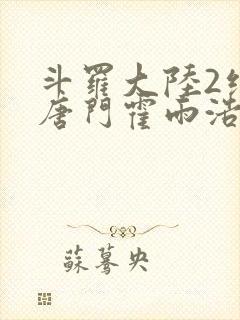 斗羅大陸2
唐門霍雨浩
蘇驀央